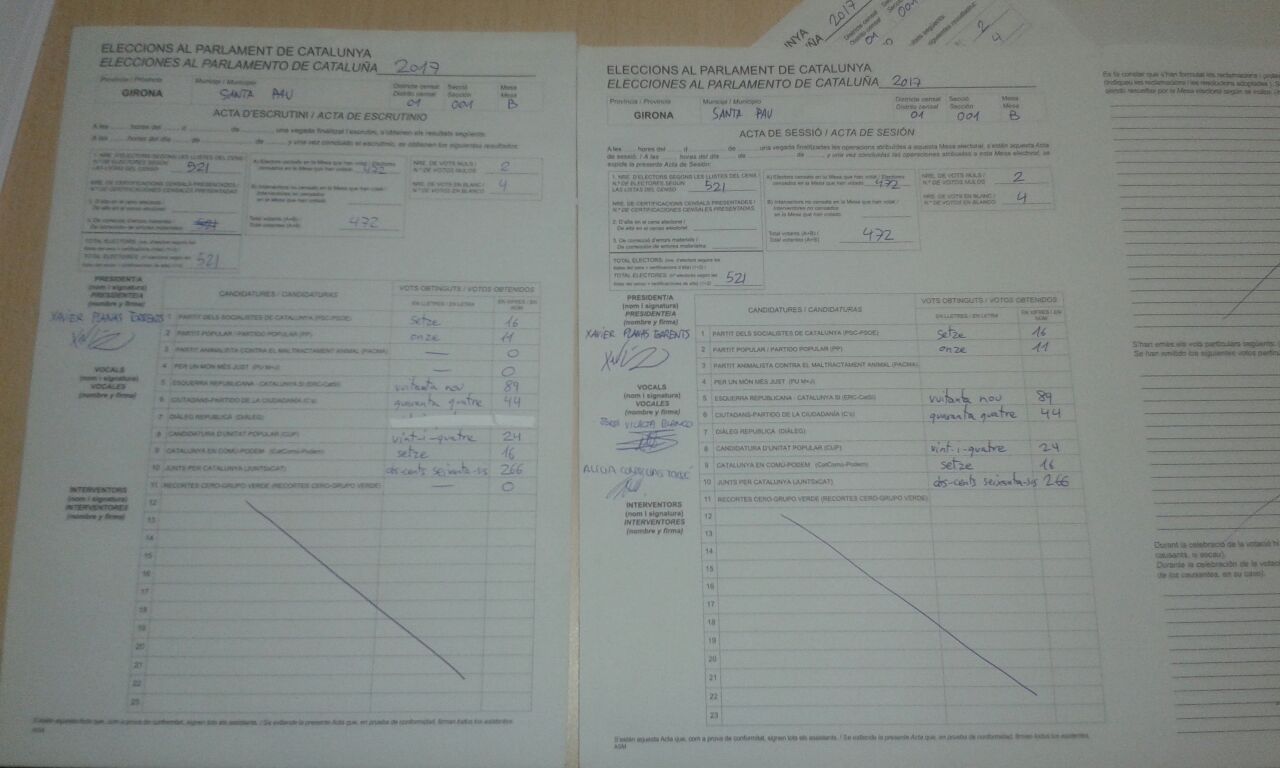 ELECCIONS AL PARLAMENT DE CATALUNYA
ELECCIONES AL PARLAMENTO DE CATALUÑA 2017
Província / Provincia
GIRONA
Municipi / Municipio
SANTA PAU
Districte censal
Distrito censal
01
Secció
Sección
001
Mesa
Mesa
B
ACTA D'ESCRUTINI / ACTA DE ESCRUTINIO
A les hores del d de , una vegada finalitzat l'escrutini, s'obtenen els resultats següents:
A las horas del día de de , y una vez concluido el escrutinio, se obtienen los siguientes resultados:
1. NRE. D'ELECTORS SEGONS LES LLISTES DEL CENS /
N.º DE ELECTORES SEGÚN
LAS LISTAS DEL CENSO 521
NRE. DE CERTIFICACIONS CENSALS PRESENTADES /
N.º DE CERTIFICACIONES CENSALES PRESENTADAS
2. D'alta en el cens electoral /
De alta en el censo electoral
3. De correcció d'errors materials /
De corrección de errores materiales 521
TOTAL ELECTORS
TOTAL ELECTORES 521
A) Electors censats en la Mesa que han votat / Electores
censados en la Mesa que han votado 472
B) Interventors no censats en la Mesa que han votat /
Interventores no censados
en la Mesa que han votado
Total votants (A+B) /
Total votantes (A+B) 472
NRE. DE VOTS NULS /
N.º DE VOTOS NULOS 2
NRE. DE VOTS EN BLANC /
N.º DE VOTOS EN BLANCO 4
PRESIDENT/A
(nom i signatura)
PRESIDENTE/A
(nombre y firma)
XAVIER PLANAS BARENTS
VOCALS
(nom i signatura)
VOCALES
(nombre y firma)
INTERVENTORS
(nom i signatura)
INTERVENTORES
(nombre y firma)
CANDIDATURES / CANDIDATURAS
VOTS OBTINGUTS / VOTOS OBTENIDOS
EN LLETRES / EN LETRA
EN XIFRES / EN NÚM.
1 PARTIT DELS SOCIALISTES DE CATALUNYA (PSC-PSOE) setze 16
2 PARTIT POPULAR / PARTIDO POPULAR (PP) onze 11
3 PARTIT ANIMALISTA CONTRA EL MALTRACTAMENT ANIMAL (PACMA) — 0
4 PER UN MÓN MÉS JUST (PU M+J) — 0
5 ESQUERRA REPUBLICANA - CATALUNYA SÍ (ERC-CatSí) vuitanta nou 89
6 CIUTADANS-PARTIDO DE LA CIUDADANÍA (C's) quaranta quatre 44
7 DIÀLEG REPUBLICÀ (DIÀLEG)
8 CANDIDATURA D'UNITAT POPULAR (CUP) vint-i-quatre 24
9 CATALUNYA EN COMÚ-PODEM (CatComú-Podem) setze 16
10 JUNTS PER CATALUNYA (JUNTSxCAT) dos-cents seixanta-sis 266
11 RECORTES CERO-GRUPO VERDE (RECORTES CERO-GRUPO VERDE) — 0
12
13
14
15
16
17
18
19
20
21
22
23
S'estén aquesta Acta que, com a prova de conformitat, signen tots els assistents. / Se extiende la presente Acta que, en prueba de conformidad, firman todos los asistentes.
ASM
ELECCIONS AL PARLAMENT DE CATALUNYA
ELECCIONES AL PARLAMENTO DE CATALUÑA 2017
Província / Provincia
GIRONA
Municipi / Municipio
SANTA PAU
Districte censal
Distrito censal
01
Secció
Sección
001
Mesa
Mesa
B
ACTA DE SESSIÓ / ACTA DE SESIÓN
A les hores del d de de , una vegada finalitzades les operacions atribuïdes a aquesta Mesa electoral, s'estén aquesta Acta
de sessió. / A las horas del día de de , y una vez concluidas las operaciones atribuidas a esta Mesa electoral, se
expide la presente Acta de Sesión:
1. NRE. D'ELECTORS SEGONS LES LLISTES DEL CENS /
N.º DE ELECTORES SEGÚN
LAS LISTAS DEL CENSO 521
NRE. DE CERTIFICACIONS CENSALS PRESENTADES /
N.º DE CERTIFICACIONES CENSALES PRESENTADAS
2. D'alta en el cens electoral /
De alta en el censo electoral
3. De correcció d'errors materials /
De corrección de errores materiales
TOTAL ELECTORS
TOTAL ELECTORES 521
A) Electors censats en la Mesa que han votat / Electores
censados en la Mesa que han votado 472
B) Interventors no censats en la Mesa que han votat /
Interventores no censados
en la Mesa que han votado
Total votants (A+B) /
Total votantes (A+B) 472
NRE. DE VOTS NULS /
N.º DE VOTOS NULOS 2
NRE. DE VOTS EN BLANC /
N.º DE VOTOS EN BLANCO 4
PRESIDENT/A
(nom i signatura)
PRESIDENTE/A
(nombre y firma)
XAVIER PLANAS BARENTS
VOCALS
(nom i signatura)
VOCALES
(nombre y firma)
VILALTA BLANCO
INTERVENTORS
(nom i signatura)
INTERVENTORES
(nombre y firma)
CANDIDATURES / CANDIDATURAS
VOTS OBTINGUTS / VOTOS OBTENIDOS
EN LLETRES / EN LETRA
EN XIFRES / EN NÚM.
1 PARTIT DELS SOCIALISTES DE CATALUNYA (PSC-PSOE) setze 16
2 PARTIT POPULAR / PARTIDO POPULAR (PP) onze 11
3 PARTIT ANIMALISTA CONTRA EL MALTRACTAMENT ANIMAL (PACMA)
4 PER UN MÓN MÉS JUST (PU M+J)
5 ESQUERRA REPUBLICANA - CATALUNYA SÍ (ERC-CatSí) vuitanta nou 89
6 CIUTADANS-PARTIDO DE LA CIUDADANÍA (C's) quaranta quatre 44
7 DIÀLEG REPUBLICÀ (DIÀLEG)
8 CANDIDATURA D'UNITAT POPULAR (CUP) vint-i-quatre 24
9 CATALUNYA EN COMÚ-PODEM (CatComú-Podem) setze 16
10 JUNTS PER CATALUNYA (JUNTSxCAT) dos-cents seixanta-sis 266
11 RECORTES CERO-GRUPO VERDE (RECORTES CERO-GRUPO VERDE)
12
13
14
15
16
17
18
19
20
21
22
23
S'estén aquesta Acta que, com a prova de conformitat, signen tots els assistents. / Se extiende la presente Acta que, en prueba de conformidad, firman todos los asistentes.
ASM
Es fa constar que s'han formulat les reclamacions i
(indiqueu les reclamacions i les resolucions adoptades).
S'han emès els vots particulars següents
Se han emitido los siguientes votos
Durant la celebració de la votació
causants, si escau).
Durante la celebración de la
de los causantes, en su caso).
2017
Districte censal
Distrito censal
01
001
2
4